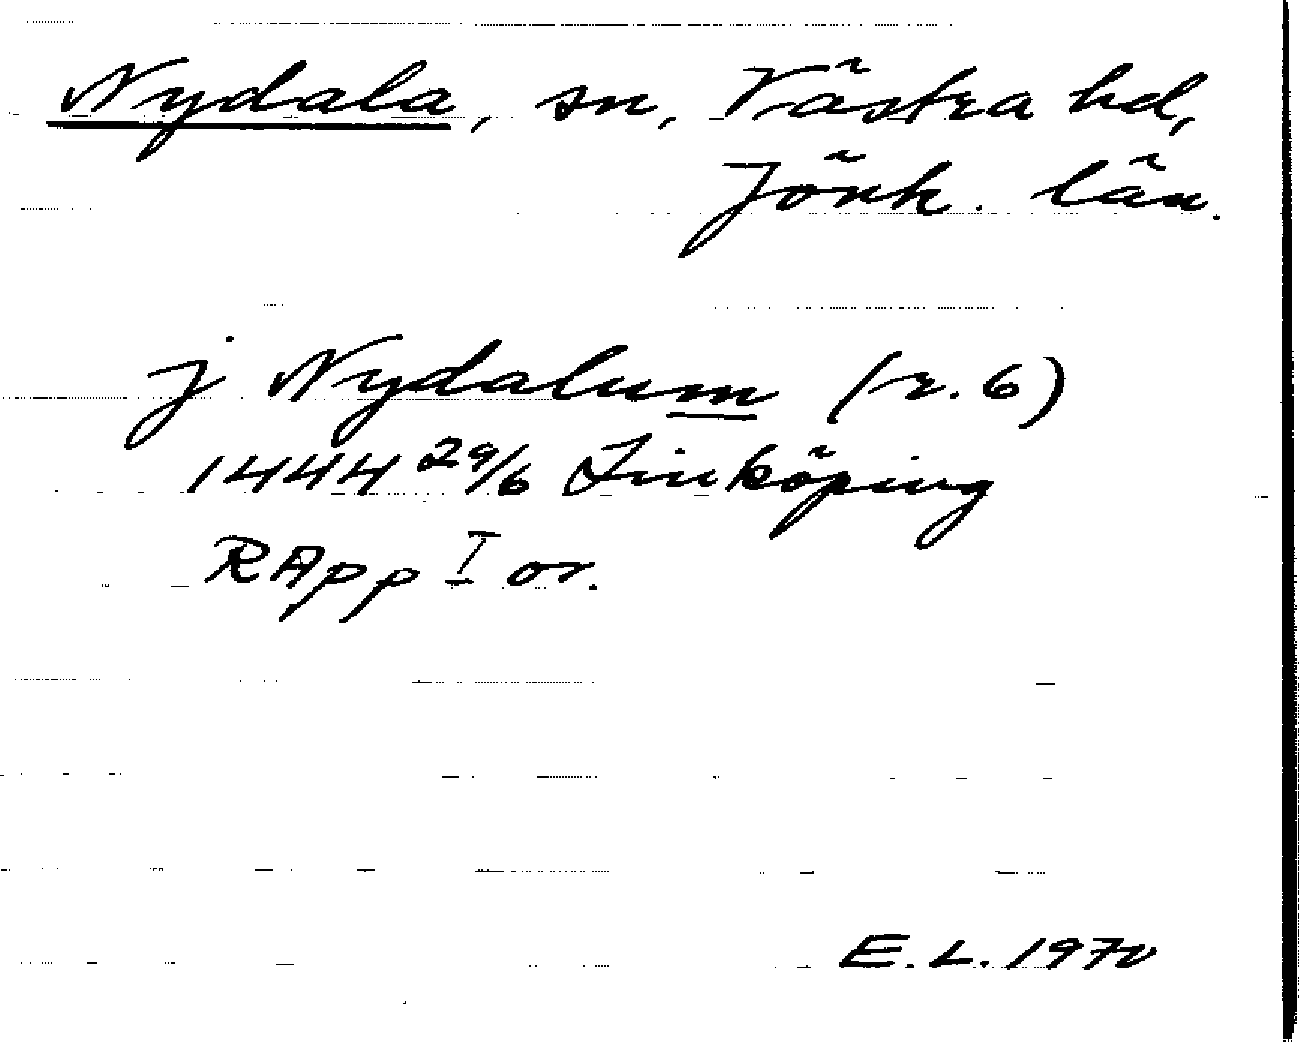 Nydala, sn, Västra hd,
Jönk. län.
j Nydalum (r. 6)
1444 29/6 Linköping
RApp I or.
E. L. 1970